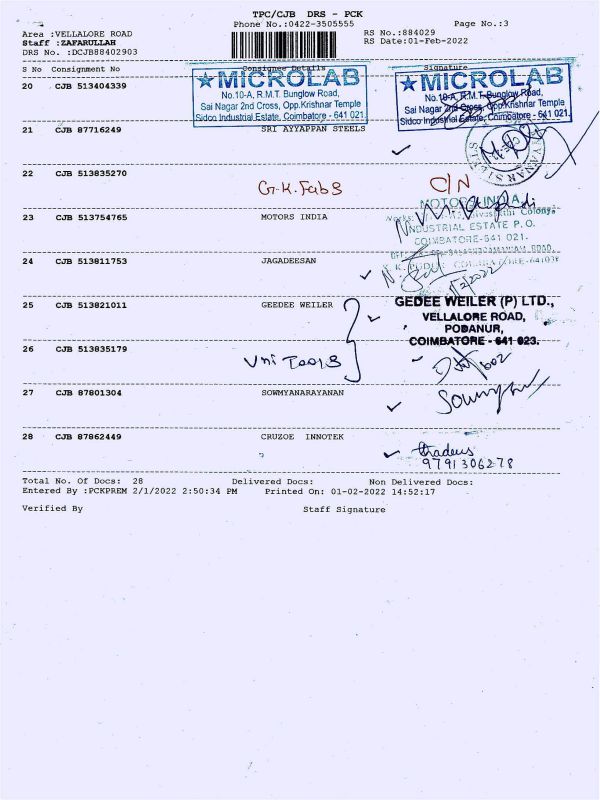 TPC/CJB DRS - PCK
Phone No.:0422-3505555 Page No.:3
Area :VELLALORE ROAD RS No.:884029
Staff :ZAFARULLAH RS Date:01-Feb-2022
DRS No. :DCJB88402903
S No Consignment No Consignee Details Signature
20 CJB 513404339
★MICROLAB
No.10-A, R.M.T. Bunglow Road,
Sai Nagar 2nd Cross, Opp.Krishnar Temple
Sidco Industrial Estate, Coimbatore - 641 021.
★MICROLAB
No.10-A, R.M.T. Bunglow Road,
Sai Nagar 2nd Cross, Opp.Krishnar Temple
Sidco Industrial Estate, Coimbatore - 641 021.
21 CJB 87716249 SRI AYYAPPAN STEELS
22 CJB 513835270 G.K.Fabs C/N
23 CJB 513754765 MOTORS INDIA
MOTORS INDIA
INDUSTRIAL ESTATE P.O.
COIMBATORE-641 021.
24 CJB 513811753 JAGADEESAN
1/2/2022
25 CJB 513821011 GEEDEE WEILER
GEDEE WEILER (P) LTD.,
VELLALORE ROAD,
PODANUR,
COIMBATORE - 641 023.
26 CJB 513835179 Uni Tools
27 CJB 87801304 SOWMYANARAYAN
28 CJB 87862449 CRUZOE INNOTEK
thadeus
9791306278
Total No. Of Docs: 28 Delivered Docs: Non Delivered Docs:
Entered By :PCKPREM 2/1/2022 2:50:34 PM Printed On: 01-02-2022 14:52:17
Verified By Staff Signature